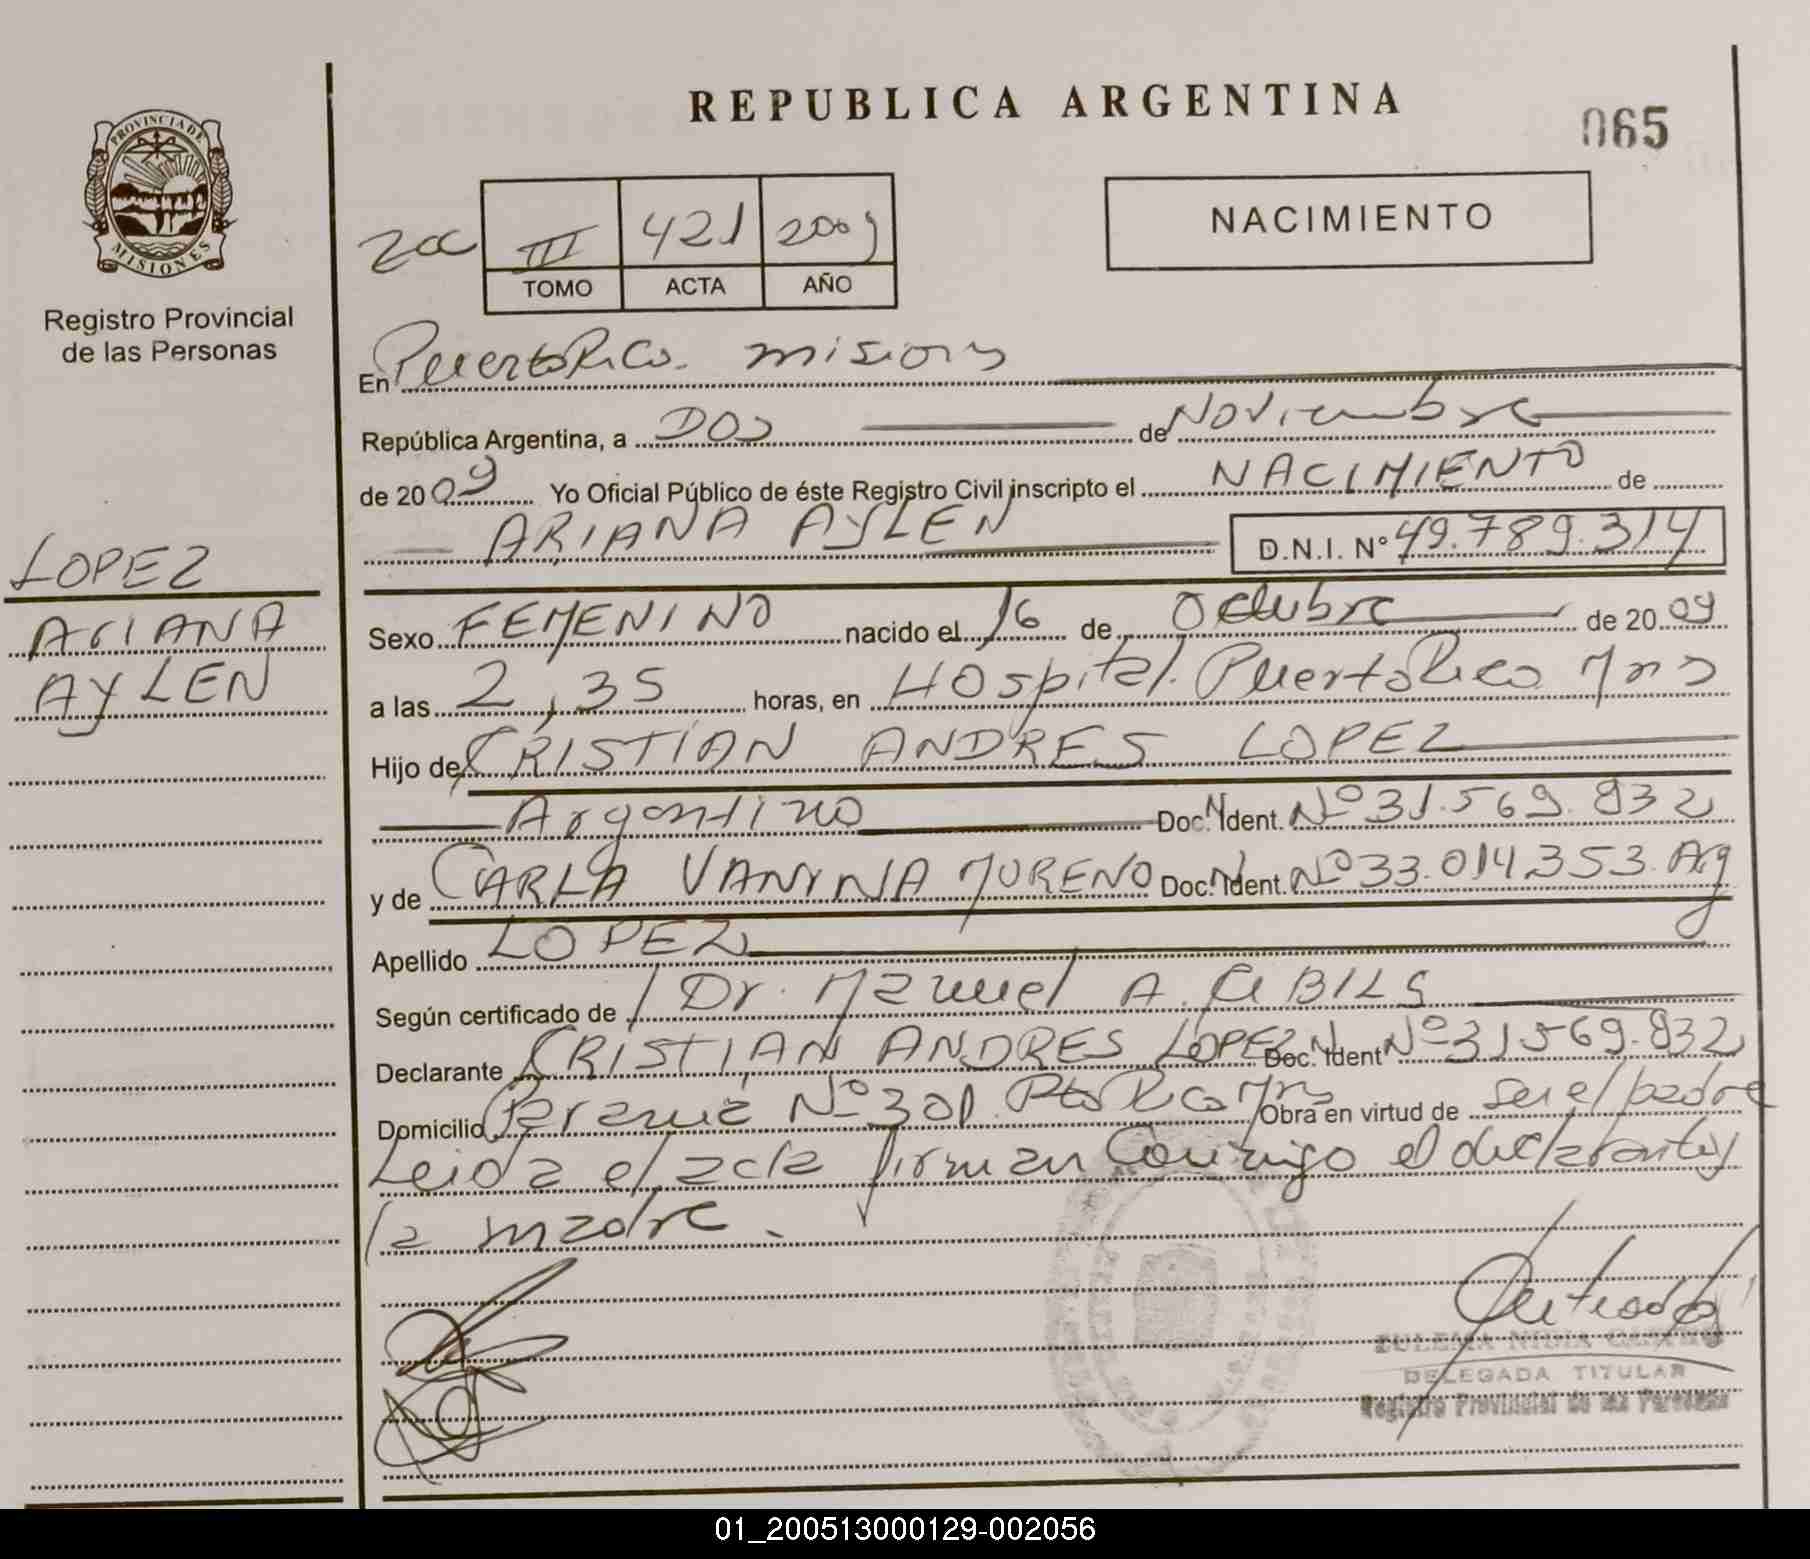 REPUBLICA ARGENTINA
065
PROVINCIA DE
MISIONES
Registro Provincial
de las Personas
III 421 2009
TOMO ACTA AÑO
NACIMIENTO
En Puerto Rico. misiones
República Argentina, a DOS de Noviembre
de 2009 Yo Oficial Público de éste Registro Civil inscripto el NACIMIENTO de
ARIANA AYLEN D.N.I. Nº 49.789.314
LOPEZ
ARIANA
AYLEN
Sexo FEMENINO nacido el 16 de Octubre de 2009
a las 2,35 horas, en Hospital. Puerto Rico Mns
Hijo de CRISTIAN ANDRES LOPEZ
Argentino Doc. N Ident. Nº 31.569.832
y de CARLA VANINA MORENO Doc. N Ident. Nº 33.014.353. Arg
Apellido LOPEZ
Según certificado de Dr. Manuel A.
Declarante CRISTIAN ANDRES LOPEZ Doc. N Ident Nº 31569.832
Domicilio Parana Nº 301. Pto Rico Mns Obra en virtud de ser el padre
Leida el acta firman Conmigo el declarante y
la madre.
DELEGADA TITULAR
Registro Provincial de las Personas
01_200513000129-002056